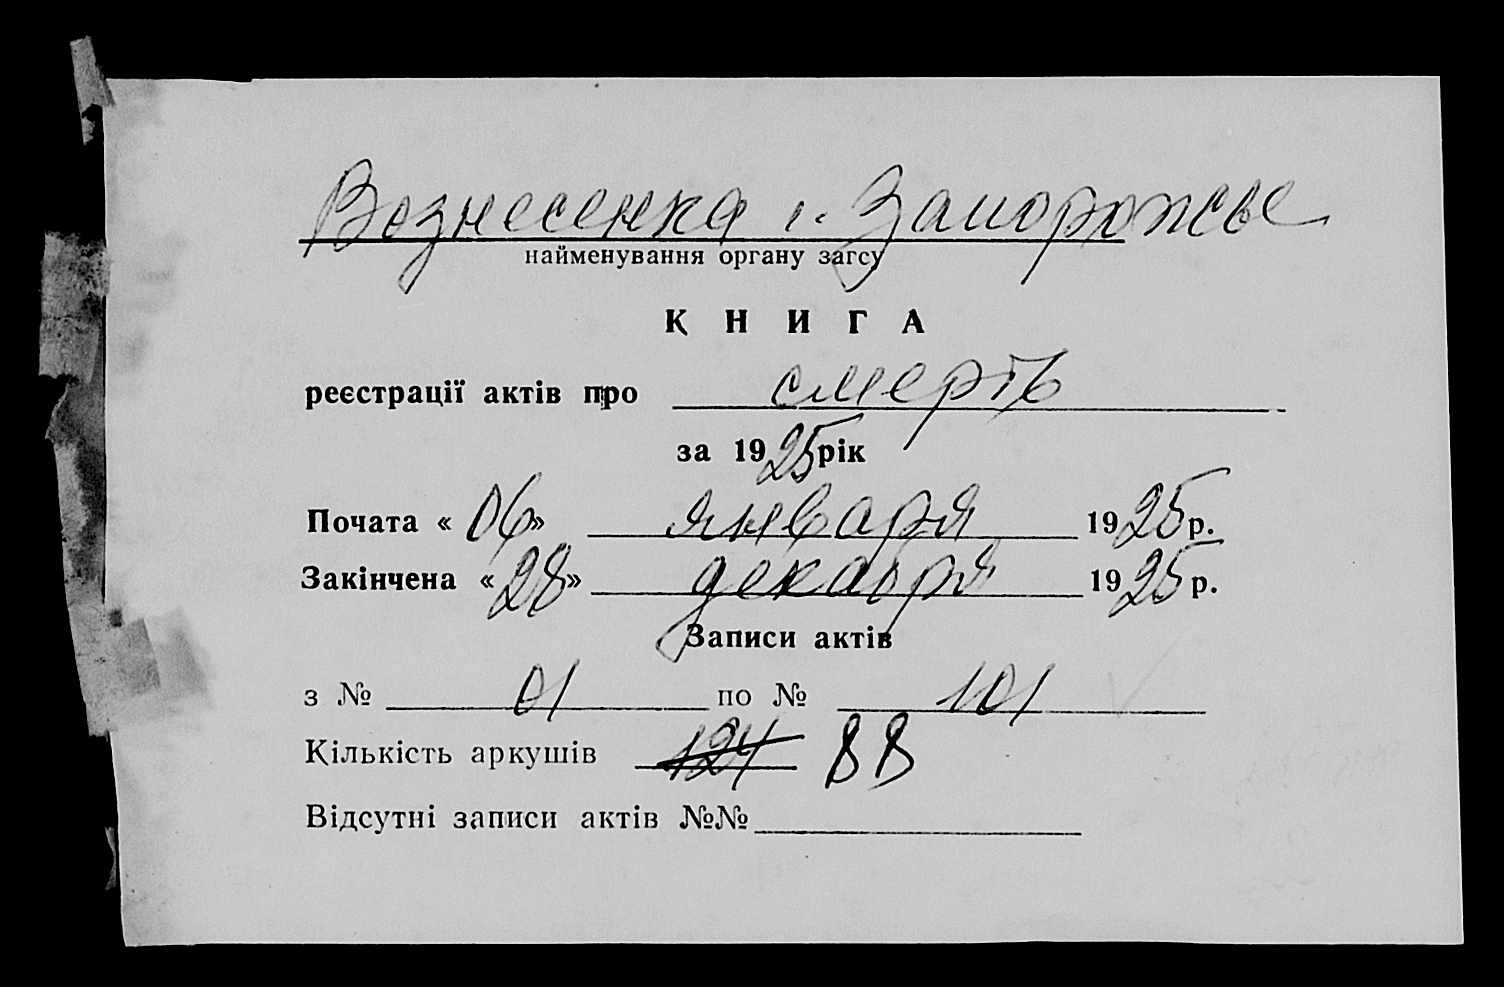 Вознесенка г. Запорожье
найменування органу загсу
КНИГА
реєстрації актів про смерть
за 1925 рік
Почата «06» января 1925 р.
Закінчена «28» декабря 1925 р.
Записи актів
з № 01 по № 101
Кількість аркушів 124 88
Відсутні записи актів №№